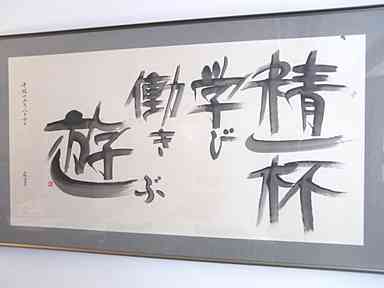 精一杯
学び
働き
遊ぶ